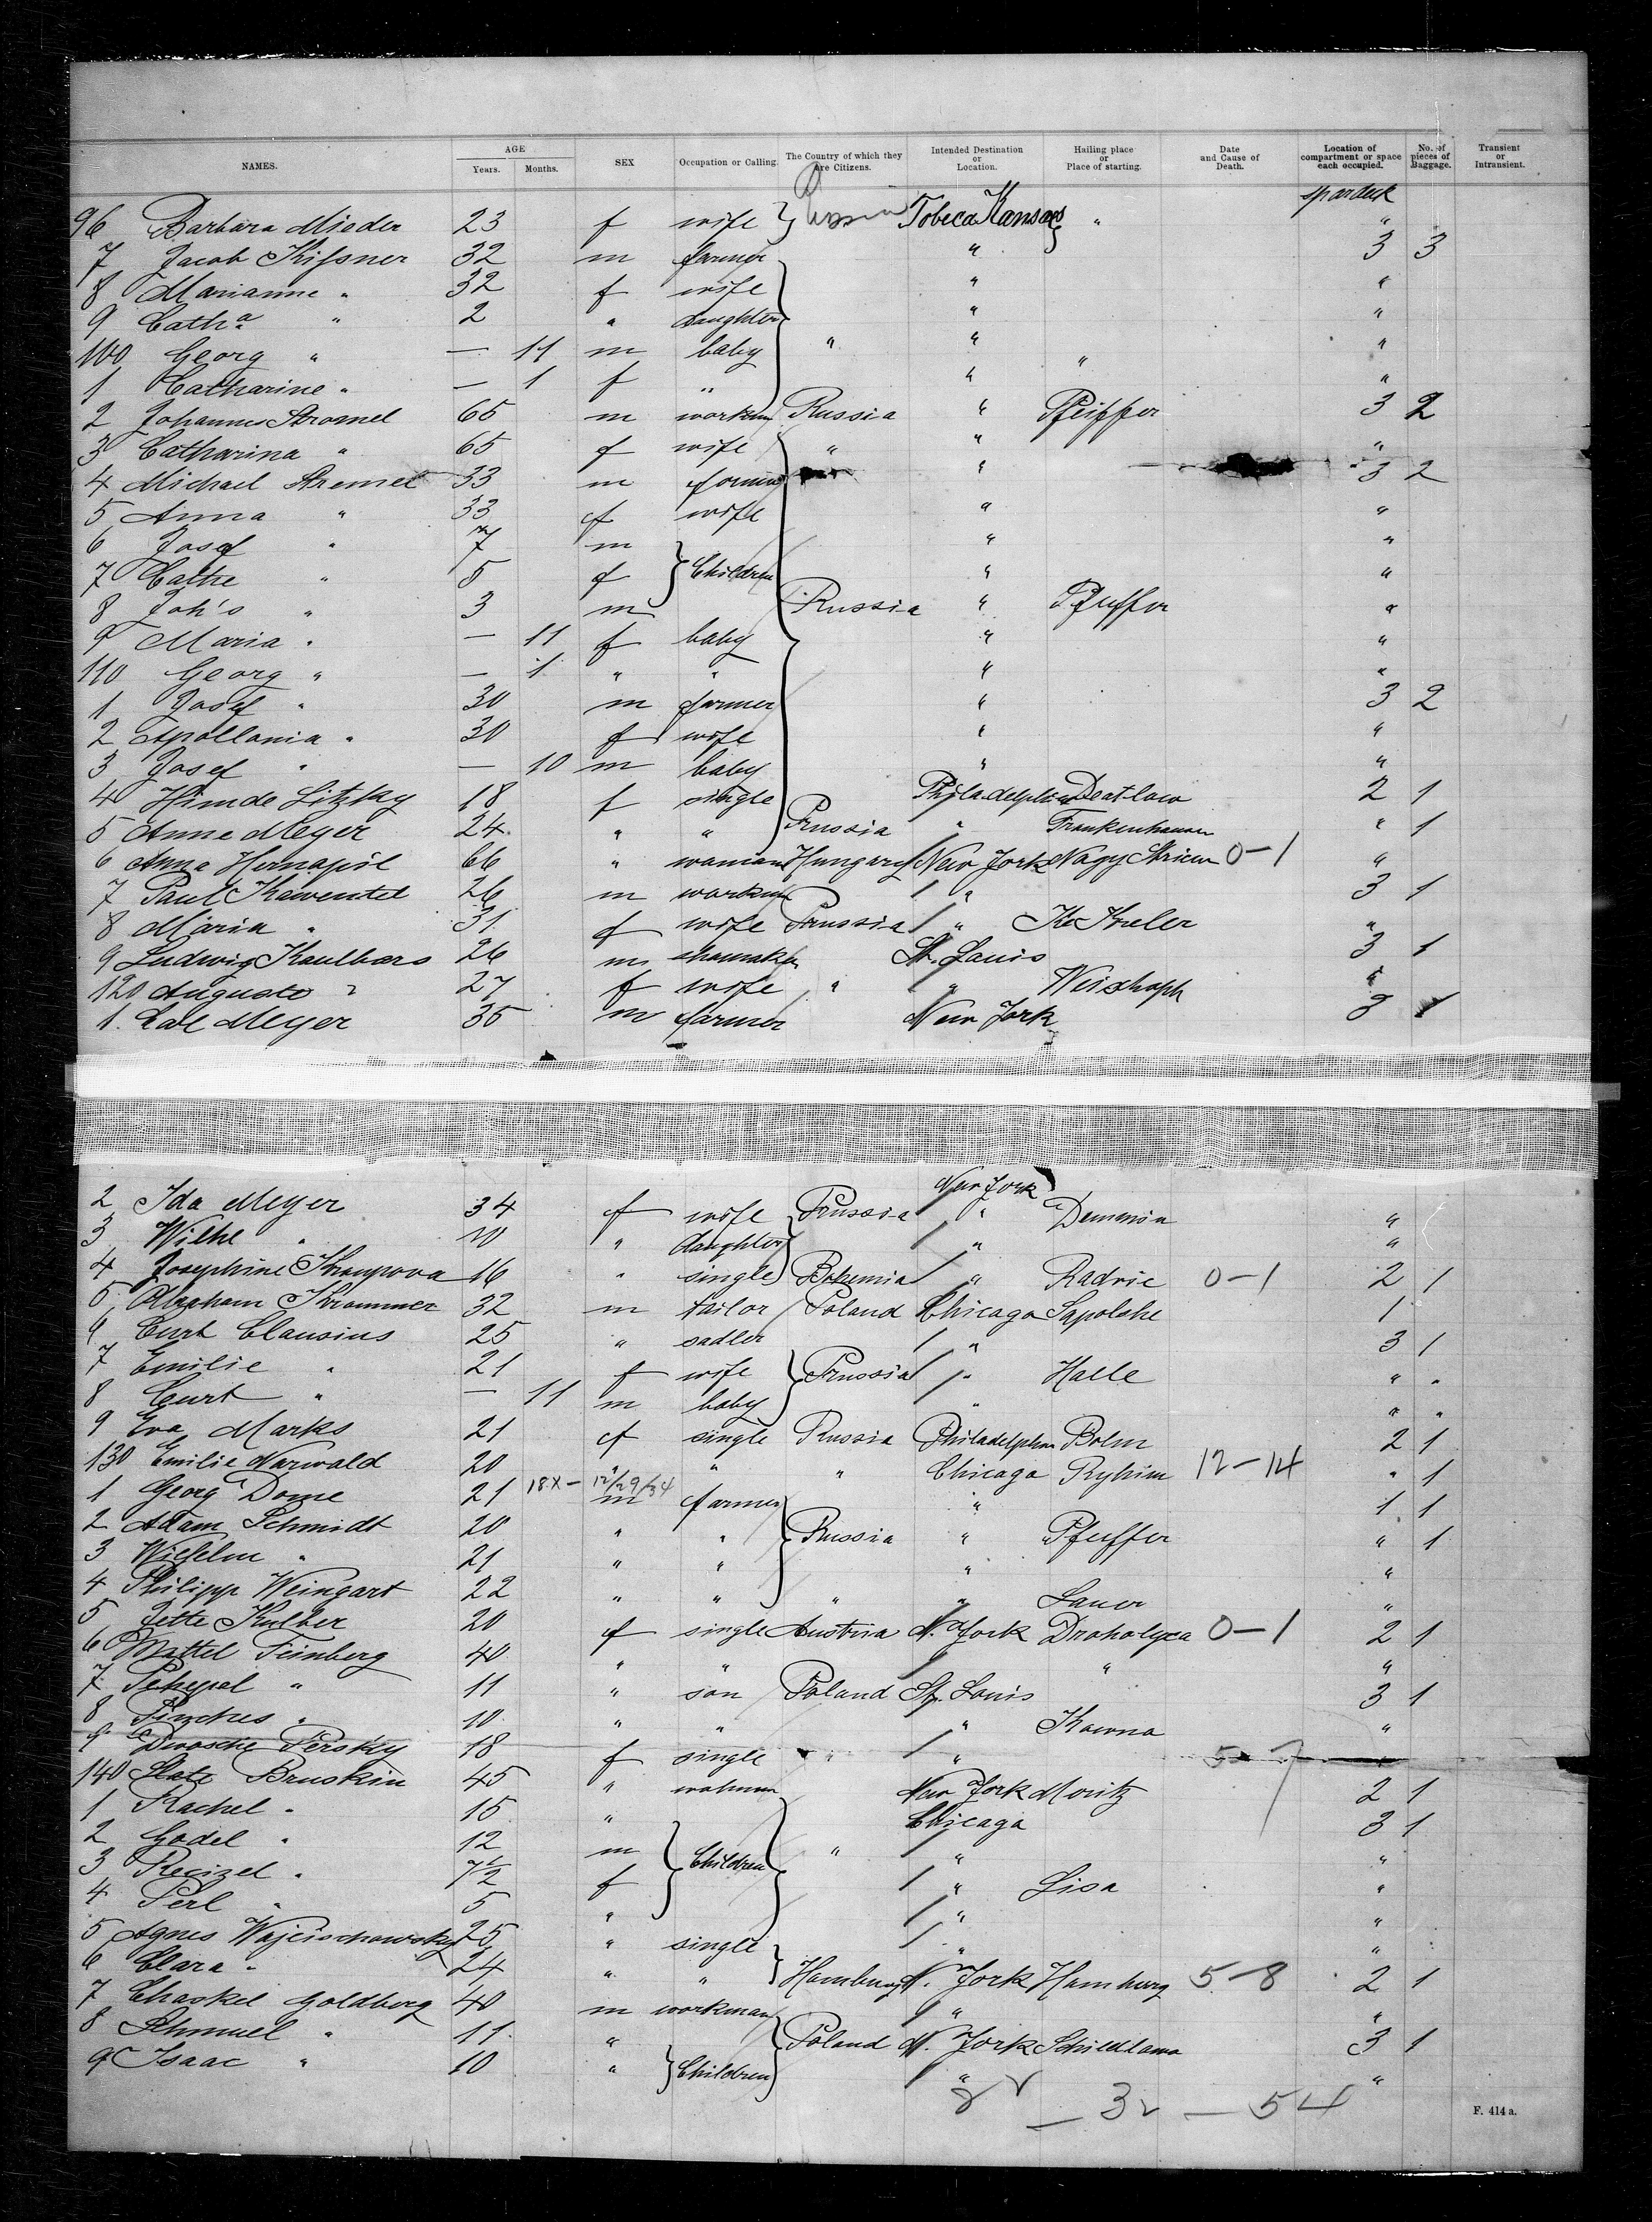 NAMES. AGE Years. Months. SEX Occupation or Calling. The Country of which they are Citizens. Intended Destination or Location. Hailing place or Place of starting. Date and Cause of Death. Location of compartment or space each occupied. No. of pieces of Baggage. Transient or Intransient.
spardeck
96 Barbara Mieder 23 f wife Russia Tobeca Kansas " "
7 Jacob Kissner 32 m farmer " 3 3
8 Marianne " 32 f wife " "
9 Catha " 2 " daughter " "
100 Georg " — 11 m baby " " " "
1 Catharine " — 1 f " " "
2 Johannes Stromel 65 m workm Russia " Pfeiffer 3 2
3 Catharina " 65 f wife " " "
4 Michael Stremel 33 m farmer " 3 2
5 Anna " 33 f wife " "
6 Josef " 7 m " "
7 Cathe " 5 f Children " "
8 Joh's " 3 m Russia " Pfeiffer "
9 Maria " — 11 f baby " "
110 Georg " — 1 " " " "
1 Josef " 30 m farmer " 3 2
2 Apollonia " 30 f wife " "
3 Josef " — 10 m baby " "
4 Hinde Litzky 18 f single Philadelphia 2 1
5 Anne Meyer 24 " " Prussia " Frankenhausen " 1
6 Anna 66 " Hungary New York Nagy 0-1 "
7 Paul 26 m workm " 3 1
8 Maria " 31 f wife Prussia " "
9 Ludwig Kaulbars 26 m St. Louis 3 1
120 Auguste " 27 f wife " " "
1. Meyer 35 m farmer New York 3 1
New York
2 Ida Meyer 34 f wife Prussia " Demmin "
3 Wilhe " 10 " daughter " "
4 Josephine 16 " single Bohemia " Radvic 0-1 2 1
5 Abraham Krammer 32 m tailor Poland Chicago 1
9 Curt Clausius 25 " sadler " 3 1
7 Emilie " 21 f wife Prussia " Halle " "
8 Curt " — 11 m baby " " "
9 Eva Marks 21 f single Russia Philadelphia 2 1
130 Emilie Narwald 20 " " " Chicago 12-14 " 1
1 Georg Dome 21 18X - 12/29/34 m farmer " 1 1
2 Adam Schmidt 20 " " Russia " Pfeiffer " 1
3 Wilhelm " 21 " " " "
4 Philipp Weingart 22 " " " " "
5 Jette Kulber 20 f single Austria N. York 0-1 2 1
6 Mattel Feinberg 40 " " " "
7 " 11 " son Poland St. Louis 3 1
8 Pinches " 10 " " " Kowno "
9 Dwosche Persky 18 f single " " 5-7 "
140 Slate Bruskin 45 " New York Moritz 2 1
1 Rachel " 15 " Chicago 3 1
2 Godel " 12 m Children " " "
3 " 7½ f " Lisa "
4 Perl " 5 " " "
5 Agnes Wojcischowsky 25 " single " "
6 Clara " 24 " " Hamburg N. York Hamburg 5-8 2 1
7 Chaskel Goldberg 40 m workman " "
8 Schmuel " 11 " Poland N. York 3 1
9 Isaac " 10 " Children " "
— 32 — 54
F. 414 a.